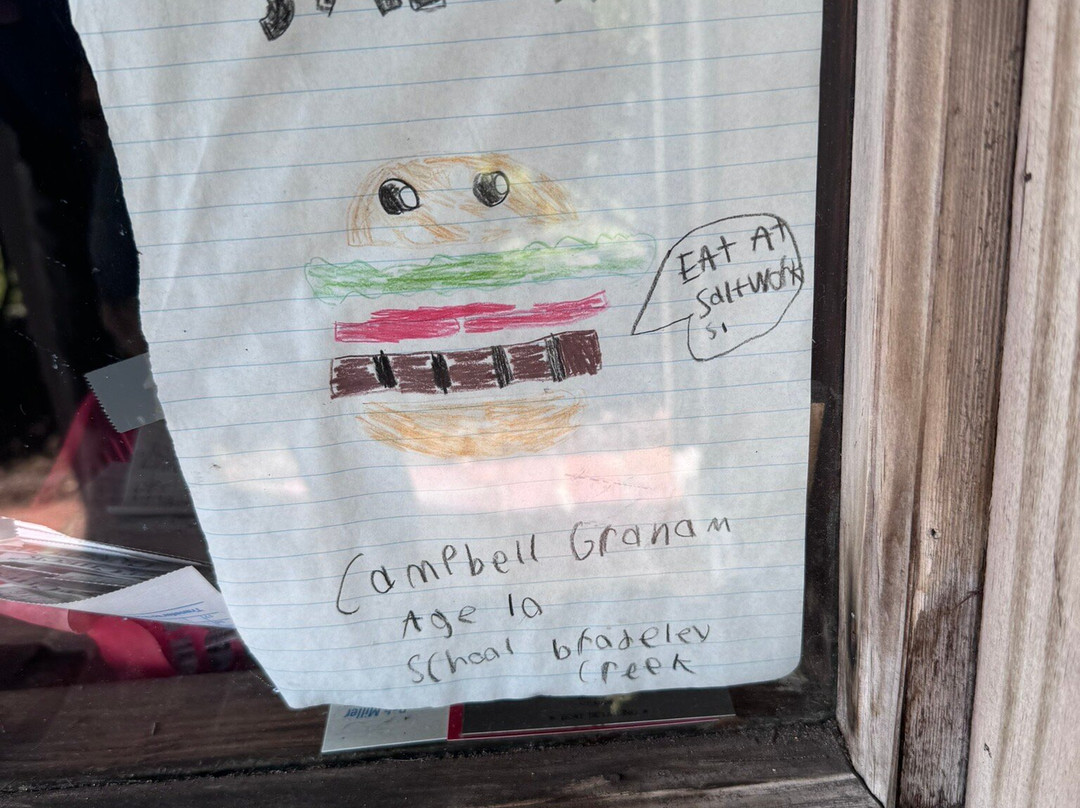 EAt At
SaltWork
s!
Campbell Granam
Age 10
School bradeley
Creek
Miller